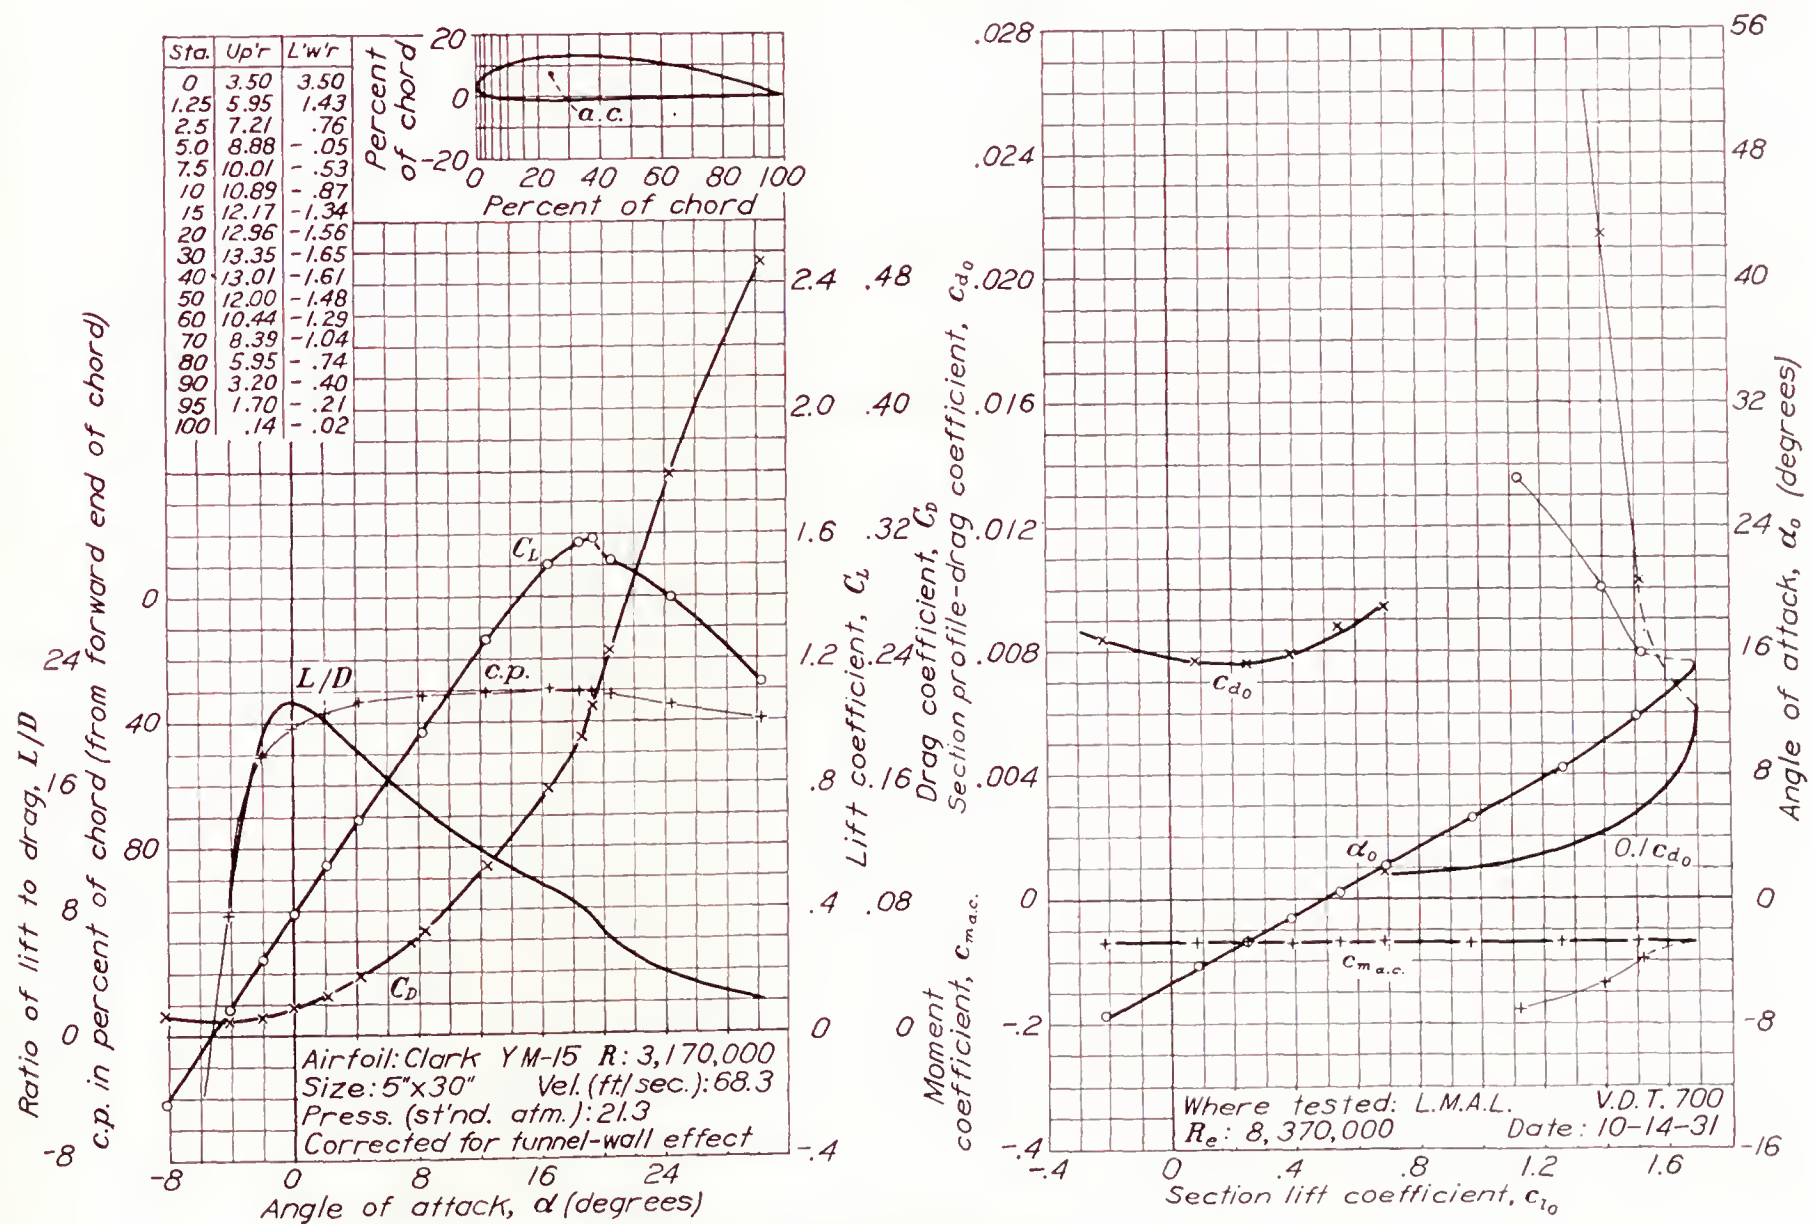 Sta. Up'r L'w'r
0 3.50 3.50
1.25 5.95 1.43
2.5 7.21 .76
5.0 8.88 - .05
7.5 10.01 - .53
10 10.89 - .87
15 12.17 -1.34
20 12.96 -1.56
30 13.35 -1.65
40 13.01 -1.61
50 12.00 -1.48
60 10.44 -1.29
70 8.39 -1.04
80 5.95 - .74
90 3.20 - .40
95 1.70 - .21
100 .14 - .02
Percent
of chord
20
0
-20
a.c.
0 20 40 60 80 100
Percent of chord
Ratio of lift to drag, L/D
24
16
8
0
-8
c.p. in percent of chord (from forward end of chord)
0
40
80
L/D
c.p.
C_L
C_D
2.4 .48
2.0 .40
1.6 .32
1.2 .24
.8 .16
.4 .08
0 0
-.4
Lift coefficient, C_L
Drag coefficient, C_D
Airfoil: Clark YM-15 R: 3,170,000
Size: 5"x30" Vel. (ft/sec.): 68.3
Press. (st'nd. atm.): 21.3
Corrected for tunnel-wall effect
-8 0 8 16 24
Angle of attack, α (degrees)
Section profile-drag coefficient, c_d₀
.028
.024
.020
.016
.012
.008
.004
0
-.2
-.4
Moment
coefficient, c_m a.c.
c_d₀
α₀
0.1 c_d₀
c_m a.c.
56
48
40
32
24
16
8
0
-8
-16
Angle of attack, α₀ (degrees)
Where tested: L.M.A.L. V.D.T. 700
R_e: 8,370,000 Date: 10-14-31
-.4 0 .4 .8 1.2 1.6
Section lift coefficient, c_l₀